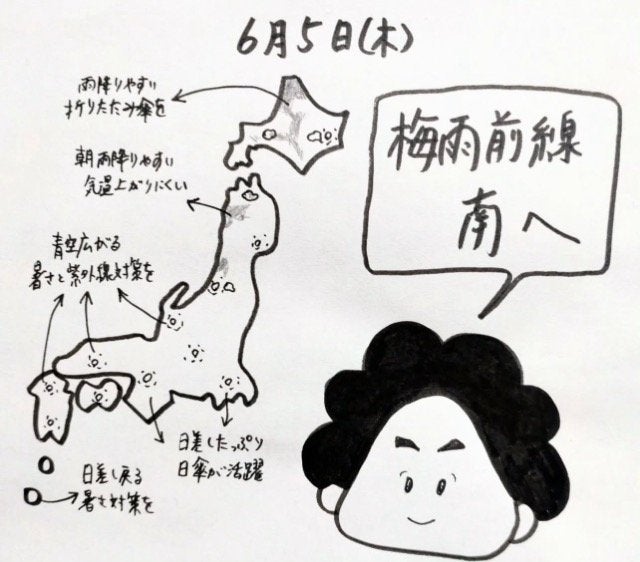 6月5日(木)
雨降りやすい
折りたたみ傘を
朝雨降りやすい
気温上がりにくい
青空広がる
暑さと紫外線対策を
梅雨前線
南へ
日差したっぷり
日傘が活躍
日差し戻る
暑さ対策を